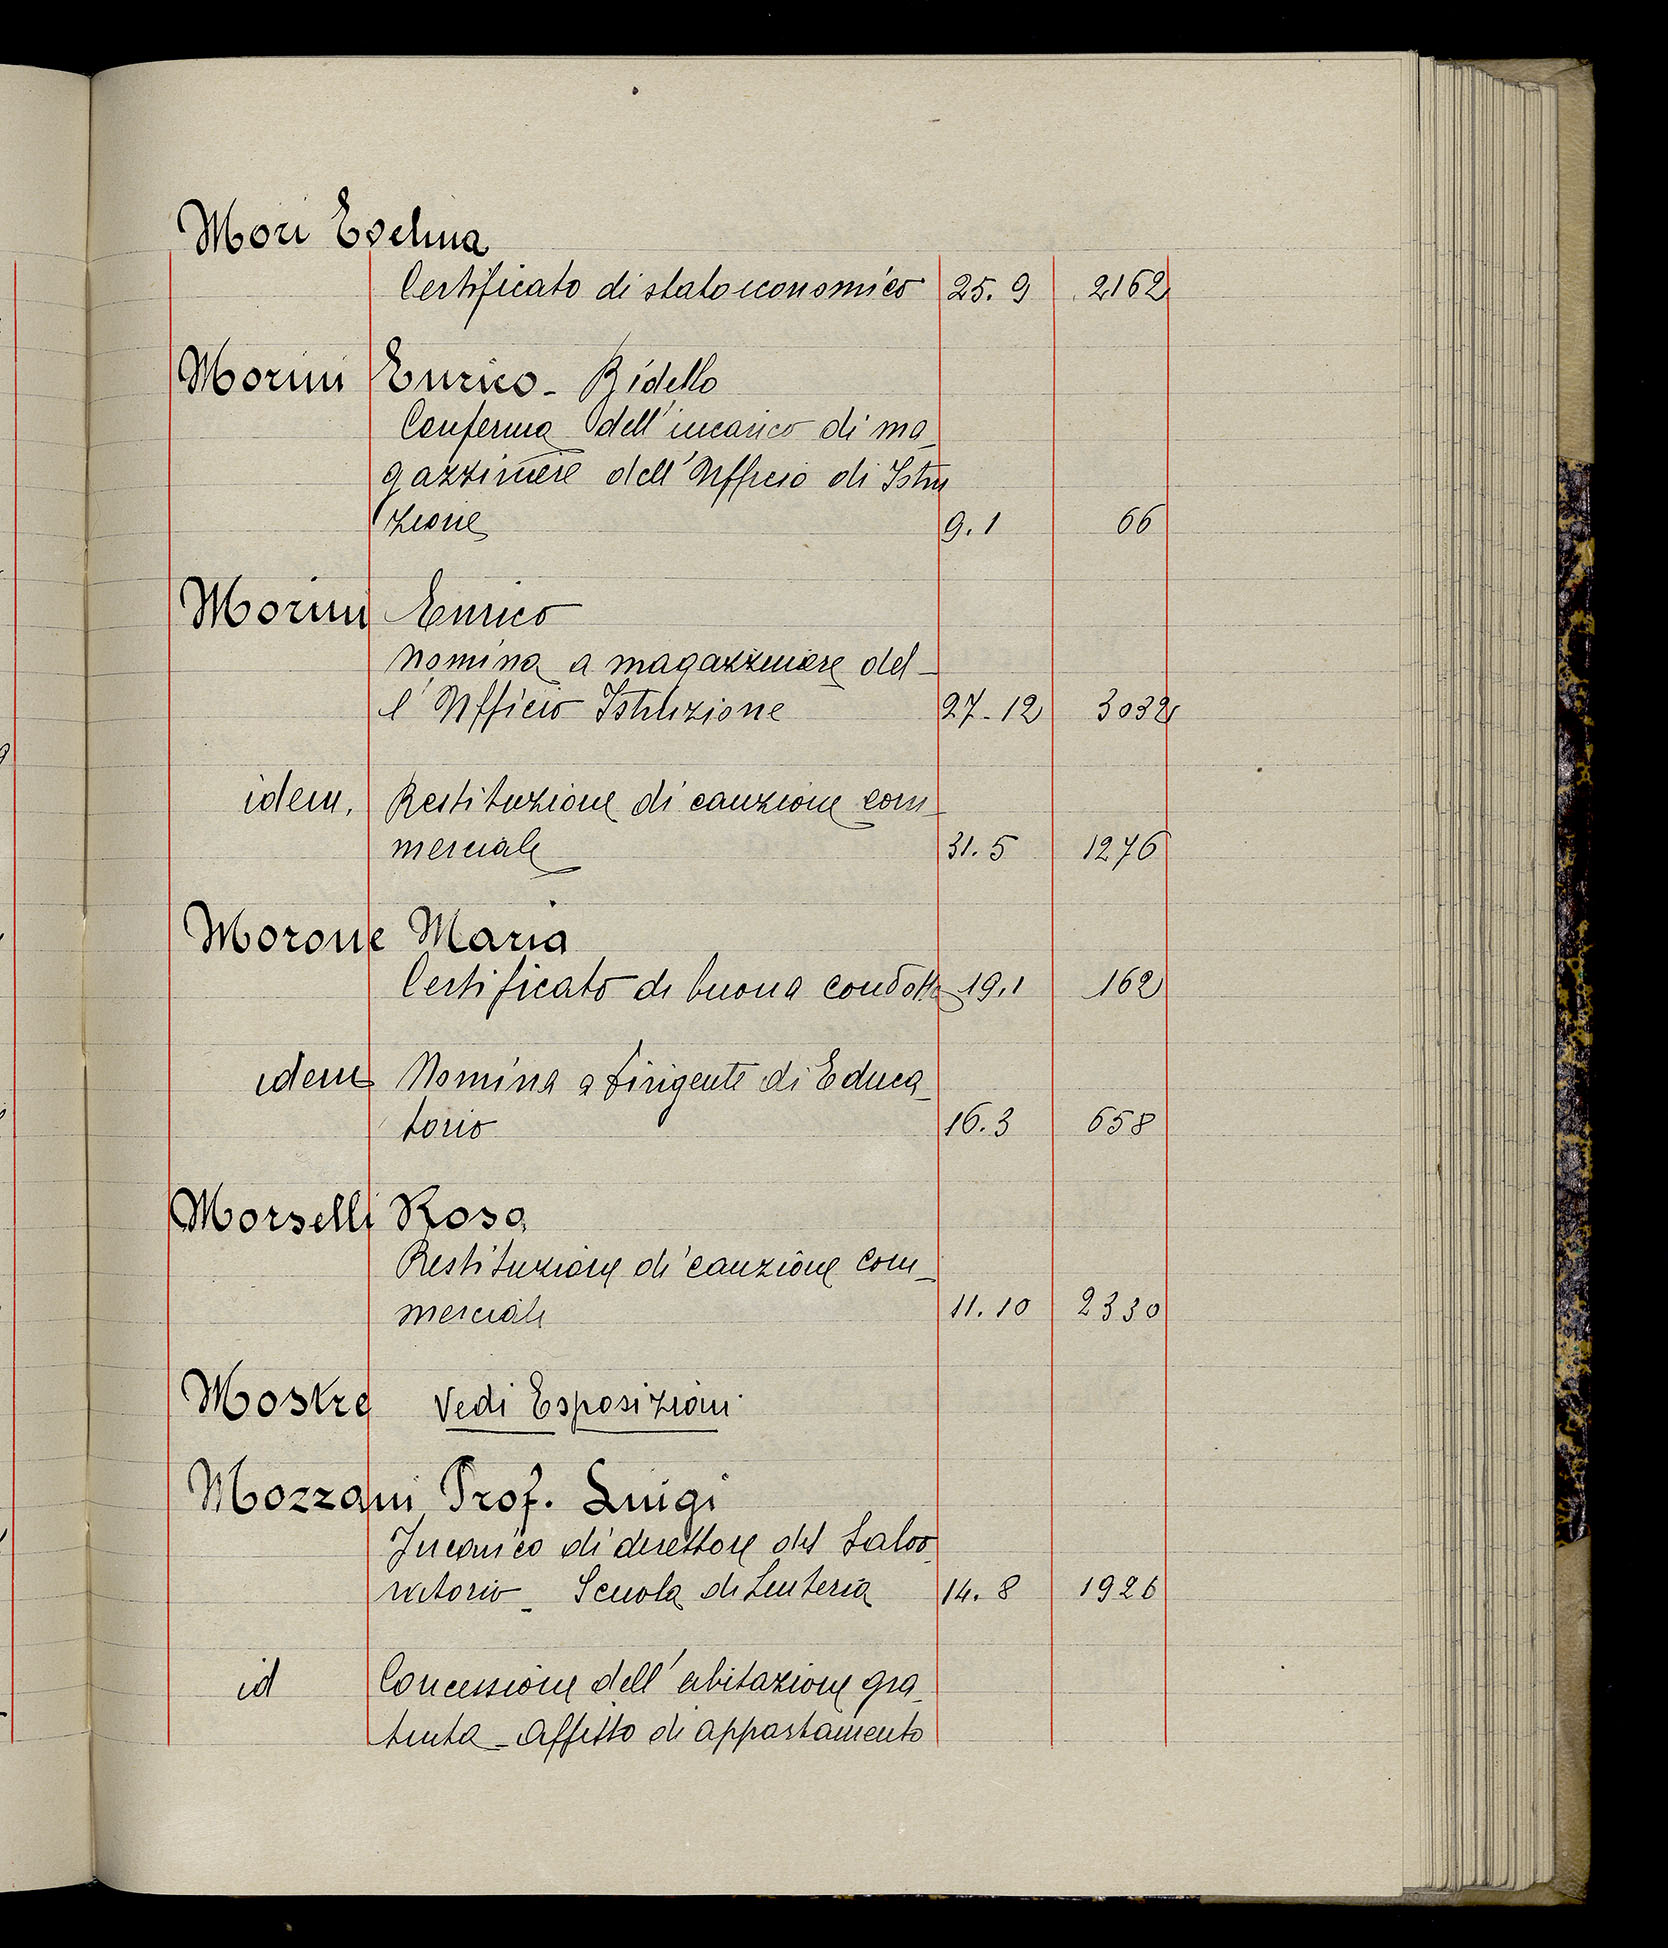 Mori Evelina
Certificato di stato economico 25. 9 2162
Morini Enrico - Bidello
Conferma dell'incarico di ma-
gazziniere dell'Ufficio di Istru
zione 9. 1 66
Morini Enrico
Nomina a magazziniere del-
l'Ufficio Istruzione 27-12 3032
idem. Restituzione di cauzione com-
merciale 31. 5 1276
Morone Maria
Certificato di buona condotta 19.1 162
idem Nomina a dirigente di Educa-
torio 16. 3 658
Morselli Rosa
Restituzione di cauzione com-
merciale 11. 10 2330
Mostre Vedi Esposizioni
Mozzani Prof. Luigi
Incarico di direttore del Labo-
ratorio - Scuola di Liuteria 14. 8 1926
id Concessione dell'abitazione gra-
tuita - Affitto di appartamento